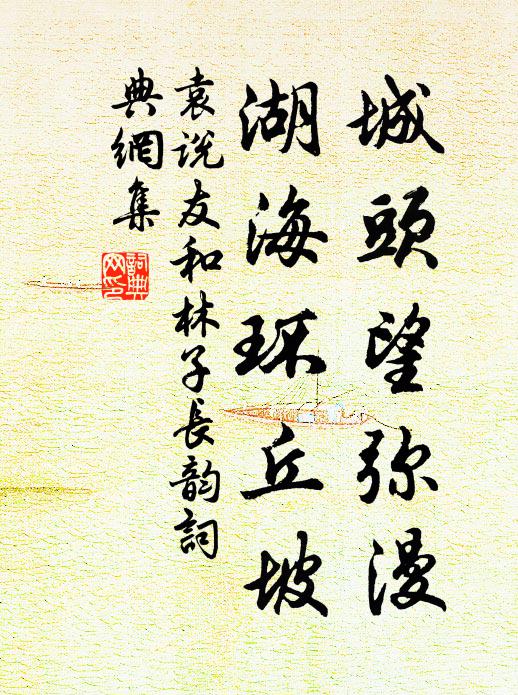 城頭望弥漫
湖海环丘坡
袁说友和林子長韵詞
典網集
詞典
网印